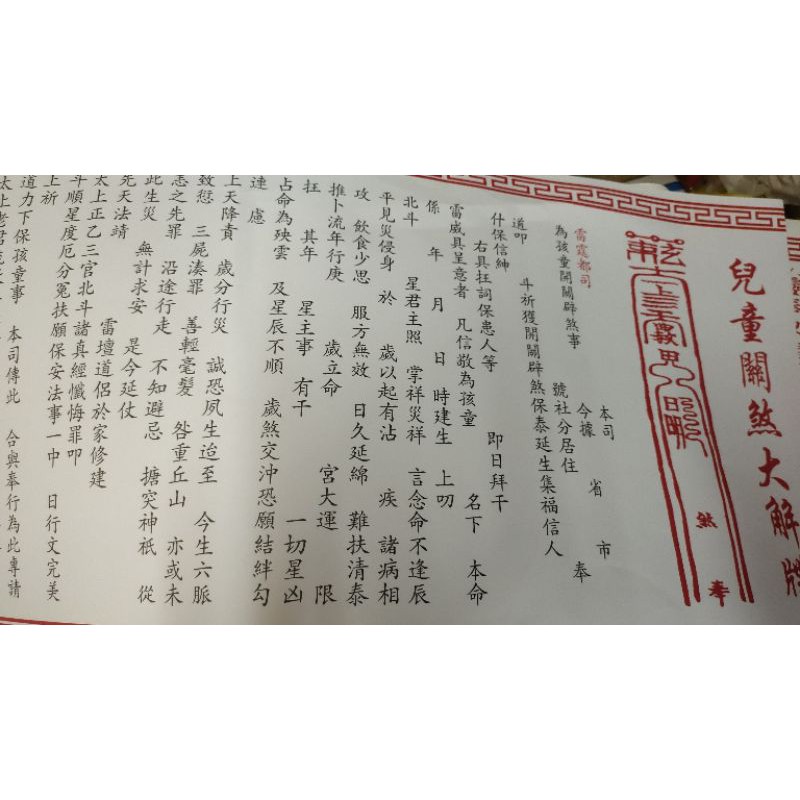 兒童關煞大解牌
煞 奉
雷霆都司
為孩童開關辟煞事
本司
今據 省 市
號社分居住 奉
道叩 斗祈獲開關辟煞保泰延生集福信人
什保信紳
右具狂詞保患人等 即日拜干
雷威具呈意者 凡信敬為孩童 名下 本命
係 年 月 日 時建生 上叨
北斗 星君主照 掌祥災祥 言念命不逢辰
平見災侵身 於 歲以起有沾 疾 諸病相
攻 飲食少思 服方無效 日久延綿 難扶清泰
推卜流年行庚 歲立命 宮大運 限
狂 其年 星主事 有干 一切星凶
占命為殃雲 及星辰不順 歲煞交沖恐願結絆勾
達 慮
上天降責 歲分行災 誠恐夙生迨至 今生六脈
致愆 三屍湊罪 善輕毫髮 咎重丘山 亦或未
志之先罪 沿途行走 不知避忌 搪突神祇 從
此生災 無計求安 是今延仗
天法靖 雷壇道侶於家修建
太上正乙三官北斗諸真經懺悔罪叩
斗順星度厄分冤扶願保安法事一中 日行文完美
上祈
道力下保孩童事 本司傳此 合與奉行為此專請
太上老君